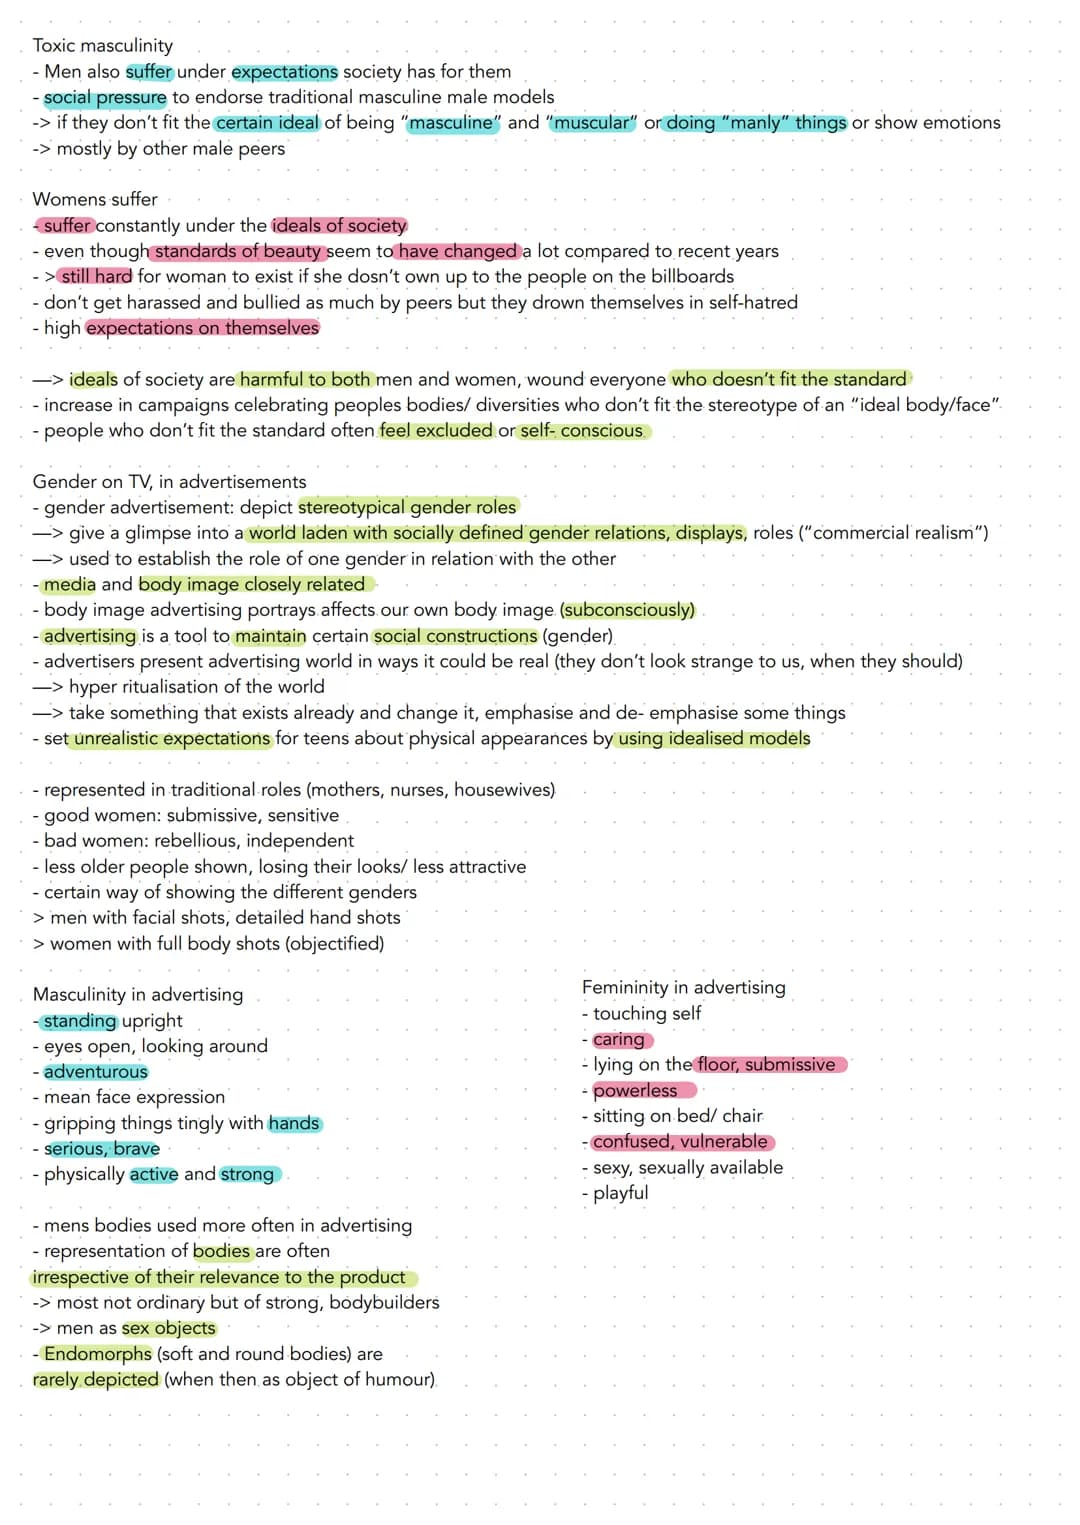 Toxic masculinity
- Men also suffer under expectations society has for them
- social pressure to endorse traditional masculine male models
-> if they don't fit the certain ideal of being "masculine" and "muscular" or doing "manly" things or show emotions
-> mostly by other male peers
Womens suffer
- suffer constantly under the ideals of society
- even though standards of beauty seem to have changed a lot compared to recent years
- > still hard for woman to exist if she dosn't own up to the people on the billboards
- don't get harassed and bullied as much by peers but they drown themselves in self-hatred
- high expectations on themselves
—> ideals of society are harmful to both men and women, wound everyone who doesn't fit the standard
- increase in campaigns celebrating peoples bodies/ diversities who don't fit the stereotype of an "ideal body/face"
- people who don't fit the standard often feel excluded or self- conscious
Gender on TV, in advertisements
- gender advertisement: depict stereotypical gender roles
—> give a glimpse into a world laden with socially defined gender relations, displays, roles ("commercial realism")
—> used to establish the role of one gender in relation with the other
- media and body image closely related
- body image advertising portrays affects our own body image (subconsciously)
- advertising is a tool to maintain certain social constructions (gender)
- advertisers present advertising world in ways it could be real (they don't look strange to us, when they should)
—> hyper ritualisation of the world
—> take something that exists already and change it, emphasise and de- emphasise some things
- set unrealistic expectations for teens about physical appearances by using idealised models
- represented in traditional roles (mothers, nurses, housewives)
- good women: submissive, sensitive
- bad women: rebellious, independent
- less older people shown, losing their looks/ less attractive
- certain way of showing the different genders
> men with facial shots, detailed hand shots
> women with full body shots (objectified)
Masculinity in advertising
- standing upright
- eyes open, looking around
- adventurous
- mean face expression
- gripping things tingly with hands
- serious, brave
- physically active and strong
- mens bodies used more often in advertising
- representation of bodies are often
irrespective of their relevance to the product
-> most not ordinary but of strong, bodybuilders
-> men as sex objects
- Endomorphs (soft and round bodies) are
rarely depicted (when then as object of humour)
Femininity in advertising
- touching self
- caring
- lying on the floor, submissive
- powerless
- sitting on bed/ chair
- confused, vulnerable
- sexy, sexually available
- playful